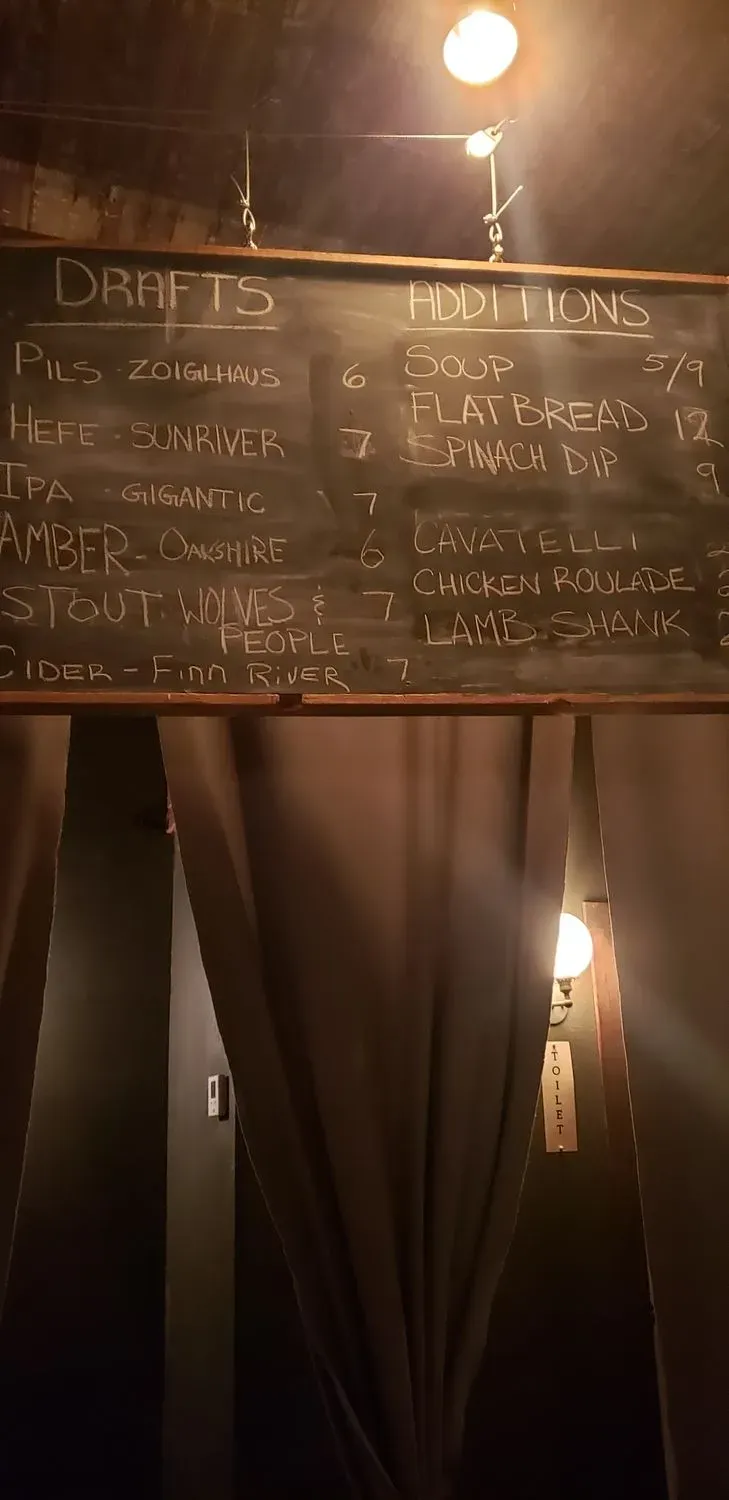 DRAFTS
PILS - ZOIGLHAUS 6
HEFE - SUNRIVER 7
IPA - GIGANTIC 7
AMBER - OAKSHIRE 6
STOUT WOLVES & 7
PEOPLE
CIDER - FINN RIVER 7
ADDITIONS
SOUP 5/9
FLATBREAD 12
SPINACH DIP 9
CAVATELLI
CHICKEN ROULADE
LAMB SHANK
TOILET